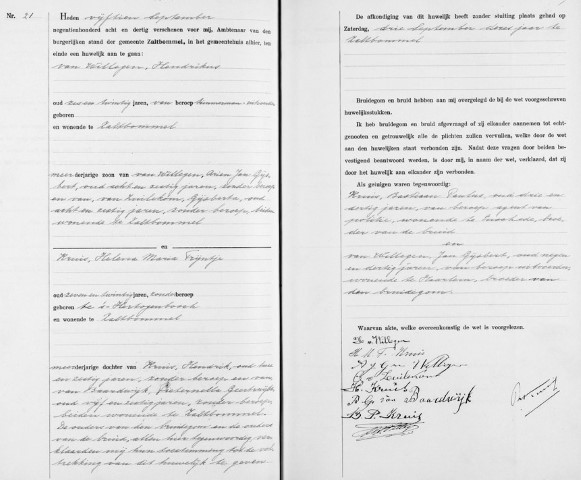 Nr. 21
Heden vijftien September
negentienhonderd acht en dertig verschenen voor mij, Ambtenaar van den
burgerlijken stand der gemeente Zaltbommel, in het gemeentehuis aldaar, ten
einde een huwelijk aan te gaan:
van Willigen, Hendrikus
oud zes en twintig jaren, van beroep timmerman
geboren
en wonende te Zaltbommel
meerderjarige zoon van van Willigen, Arien Jan Gijs-
bert, oud acht en zestig jaren, zonder beroep
en van, van Zuilekom, Gijsberta, oud
acht en zestig jaren, zonder beroep, beiden
wonende te Zaltbommel
en
Kruis, Helena Maria Fijntje
oud zeven en twintig jaren, zonder beroep
geboren te 's-Hertogenbosch
en wonende te Zaltbommel
meerderjarige dochter van Kruis, Hendrik, oud
en zestig jaren, zonder beroep en van
van Baardwijk, Pieternella Geertruida
oud vijf en zestig jaren, zonder beroep
beiden wonende te Zaltbommel.
De ouders van den bruidegom en de ouders
van de bruid, allen hier tegenwoordig ver-
klaarden mij hun toestemming tot de vol-
trekking van dit huwelijk te geven
De afkondiging van dit huwelijk heeft zonder stuiting plaats gehad op
Zaterdag, drie September dezes jaar te
Zaltbommel
Bruidegom en bruid hebben aan mij overgelegd de bij de wet voorgeschreven
huwelijksstukken.
Ik heb bruidegom en bruid afgevraagd of zij elkander aannemen tot echt-
genooten en getrouwelijk alle de plichten zullen vervullen, welke door de wet
aan den huwelijken staat verbonden zijn. Nadat deze vragen door beiden be-
vestigend beantwoord werden, is door mij, in naam der wet, verklaard, dat zij
door het huwelijk aan elkander zijn verbonden.
Als getuigen waren tegenwoordig:
Kruis, Bastiaan Paulus, oud drie en
dertig jaren, van beroep agent van
politie, wonende te Enschede, broe-
der van de bruid
en
van Willigen, Jan Gijsbert, oud negen
en dertig jaren, van beroep
wonende te Haarlem, broeder van
den bruidegom.
Waarvan akte, welke overeenkomstig de wet is voorgelezen.
H. v. Willigen
H. M. F. Kruis
H. Kruis
P. G. van Baardwijk
B. P. Kruis